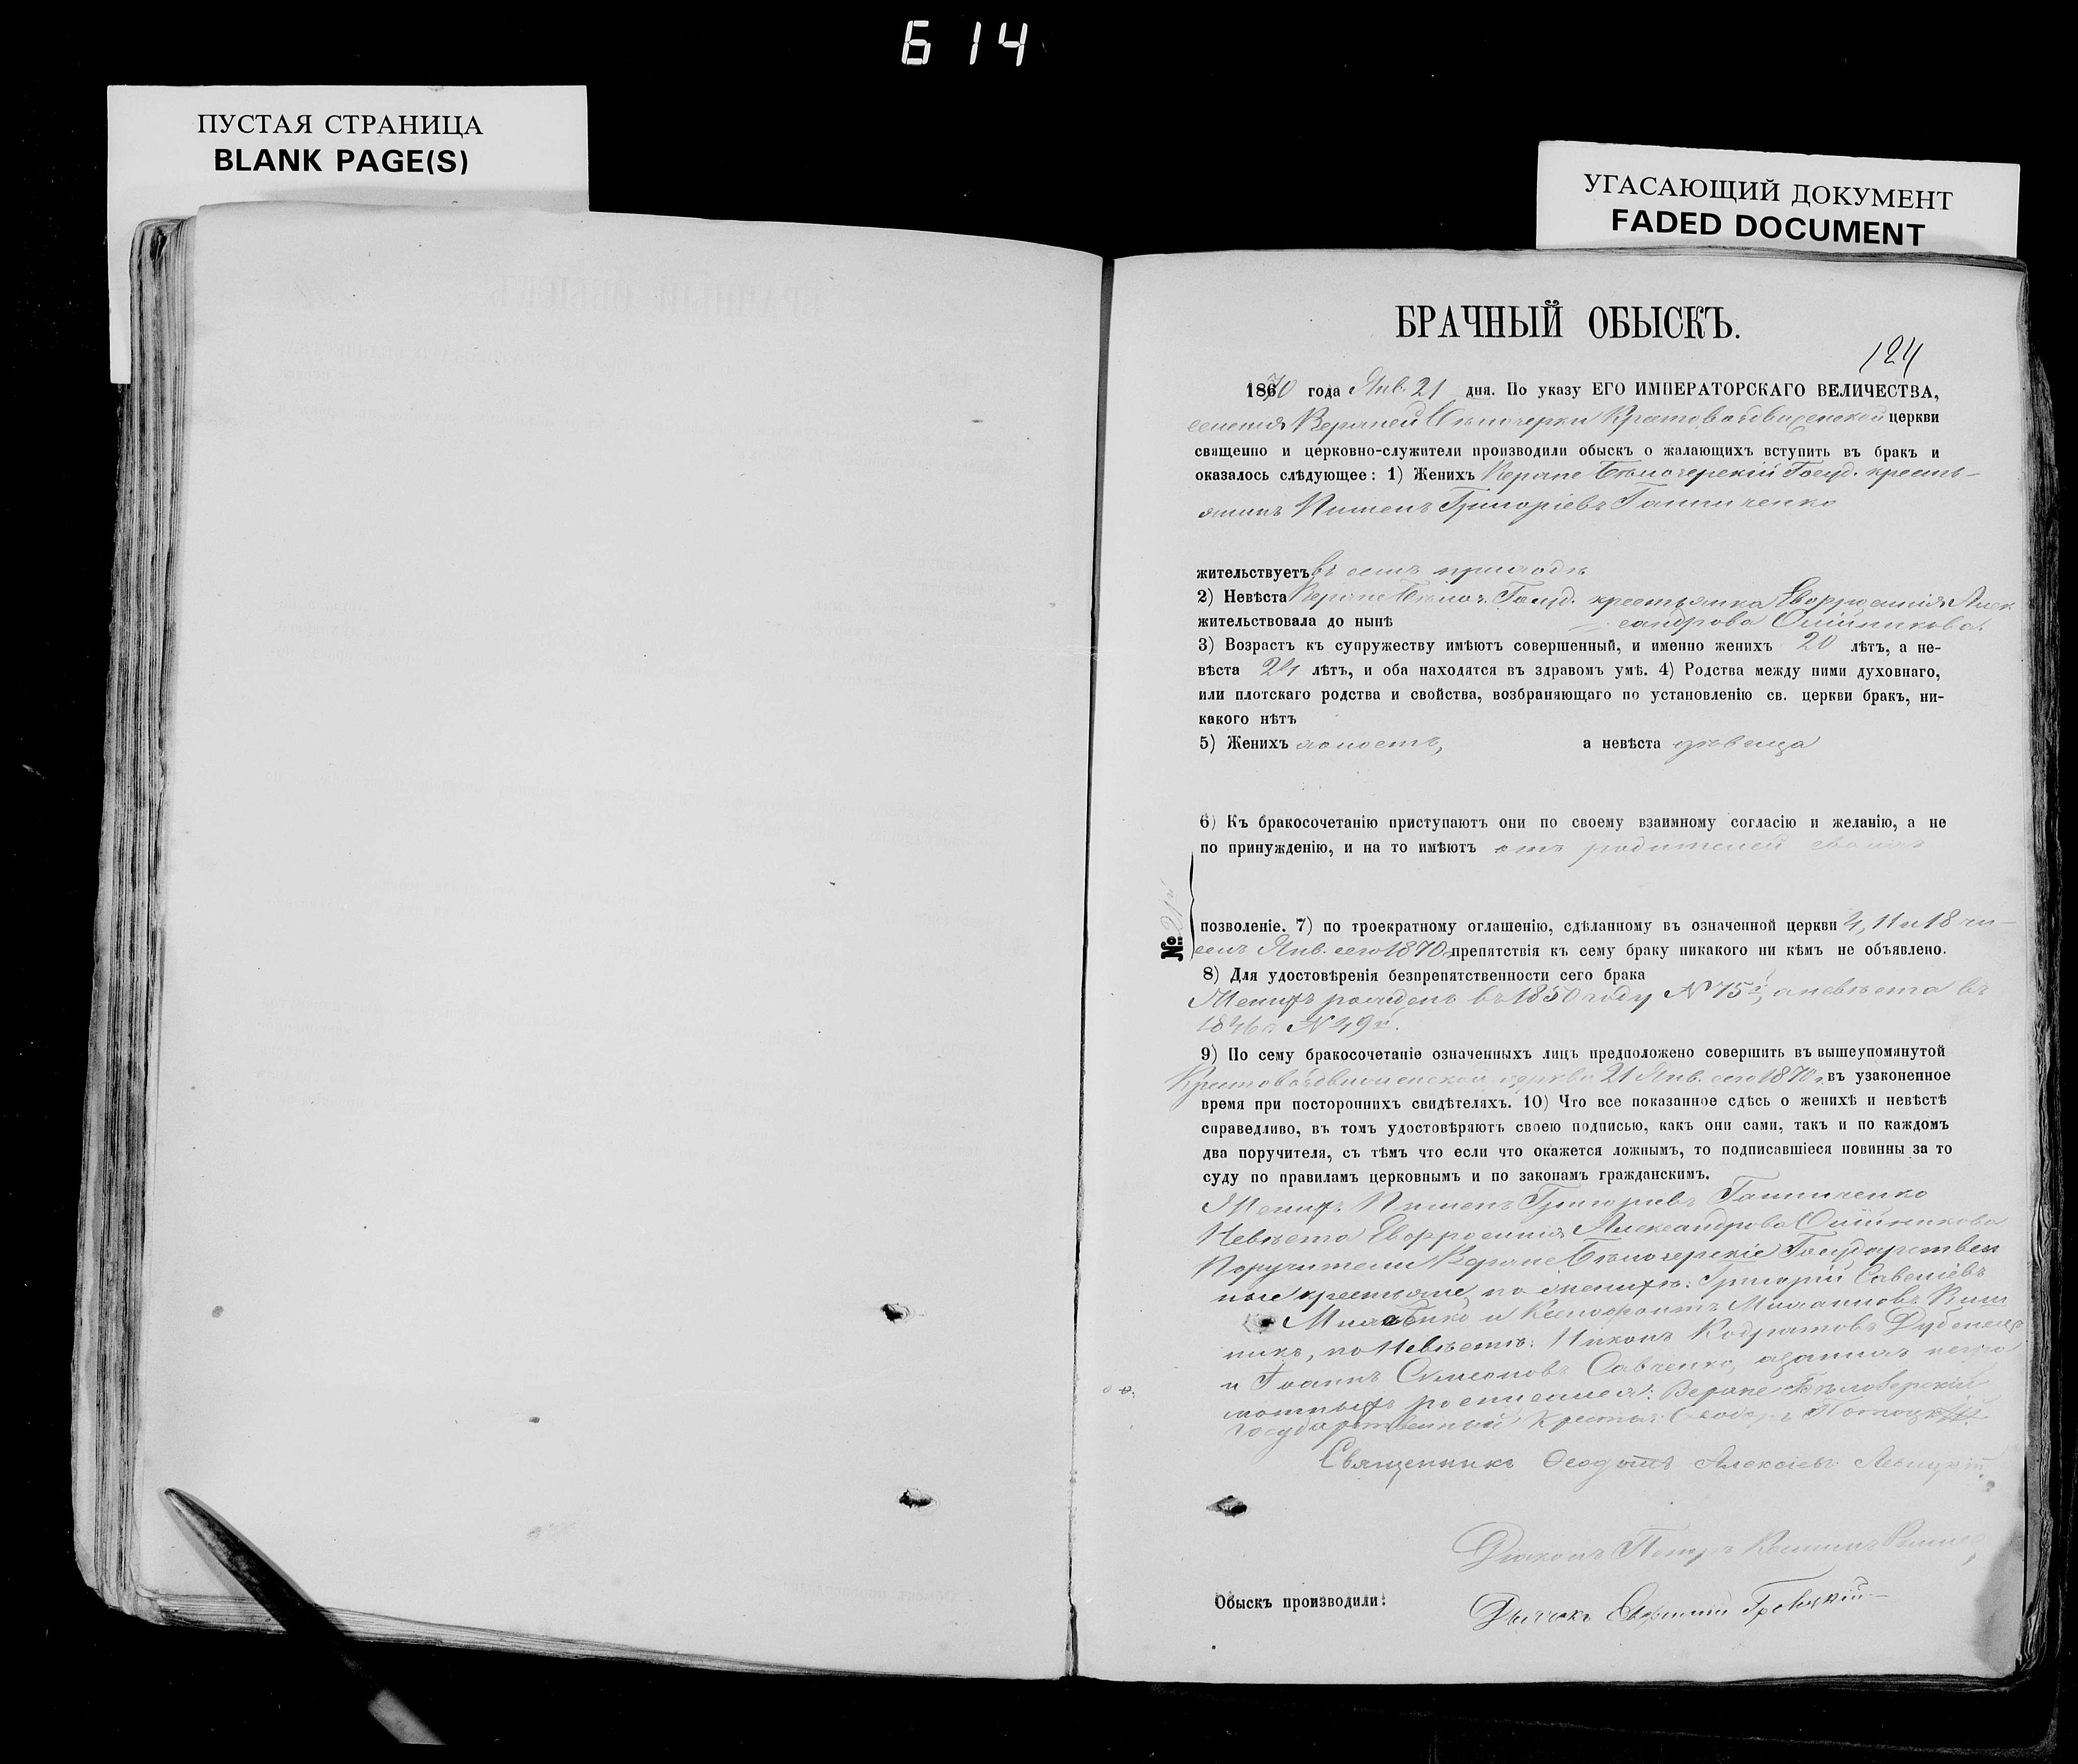 614
ПУСТАЯ СТРАНИЦА
BLANK PAGE(S)
УГАСАЮЩИЙ ДОКУМЕНТ
FADED DOCUMENT
БРАЧНЫЙ ОБЫСКЪ.
124
1870 года Янв. 21 дня. По указу ЕГО ИМПЕРАТОРСКАГО ВЕЛИЧЕСТВА,
селенія Верхней Бѣлозерки Крестовоздвиженской церкви
священно и церковно-служители производили обыскъ о жалающихъ вступить въ бракъ и
оказалось слѣдующее: 1) Женихъ Верхне Бѣлозерскій Госуд. кресть-
янинъ Пименъ Григоріевъ
жительствуетъ въ семъ приходѣ
2) Невѣста Верхне Бѣлоз. Госуд. крестьянка Евфросинія Алек
жительствовала до нынѣ сандрова Олійникова.
3) Возрастъ къ супружеству имѣютъ совершенный, и именно женихъ 20 лѣтъ, а не-
вѣста 24 лѣтъ, и оба находятся въ здравомъ умѣ. 4) Родства между ними духовнаго,
или плотскаго родства и свойства, возбраняющаго по установленію св. церкви бракъ, ни-
какого нѣтъ
5) Женихъ холостъ, а невѣста дѣвица
6) Къ бракосочетанію приступаютъ они по своему взаимному согласію и желанію, а не
по принужденію, и на то имѣютъ отъ родителей своихъ
№ 21й
позволеніе. 7) по троекратному оглашенію, сдѣланному въ означенной церкви 4, 11 и 18 чи-
селъ Янв. сего 1870 г. препятствія къ сему браку никакого ни кѣмъ не объявлено.
8) Для удостовѣренія безпрепятственности сего брака
Женихъ рожденъ въ 1850 году № 75й, а невѣста въ
1846 г. № 49й.
9) По сему бракосочетаніе означенныхъ лицъ предположено совершить въ вышеупомянутой
Крестовоздвиженской церкви 21 Янв. сего 1870 г. въ узаконенное
время при постороннихъ свидѣтеляхъ. 10) Что все показанное сдѣсь о женихѣ и невѣстѣ
справедливо, въ томъ удостовѣряютъ своею подписью, какъ они сами, такъ и по каждомъ
два поручителя, съ тѣмъ что если что окажется ложнымъ, то подписавшіеся повинны за то
суду по правиламъ церковнымъ и по законамъ гражданскимъ.
Женихъ Пименъ Григорьевъ
Невѣста Евфросинія Александрова Олійникова
Поручители Верхне Бѣлозерскіе Государствен
ные крестьяне, по женихѣ: Григорій Савеліевъ
и Ксенофонтъ
никъ, по Невѣстѣ: Никонъ Кодратовъ
и Іоаннъ Симеоновъ Савченко, а за нихъ негра
мотныхъ росписался: Верхне Бѣлозерскій
Государственный Крестья:
Священникъ Ѳеодотъ Алексіевъ
Діаконъ Петръ
Обыскъ производили:
Дьячекъ